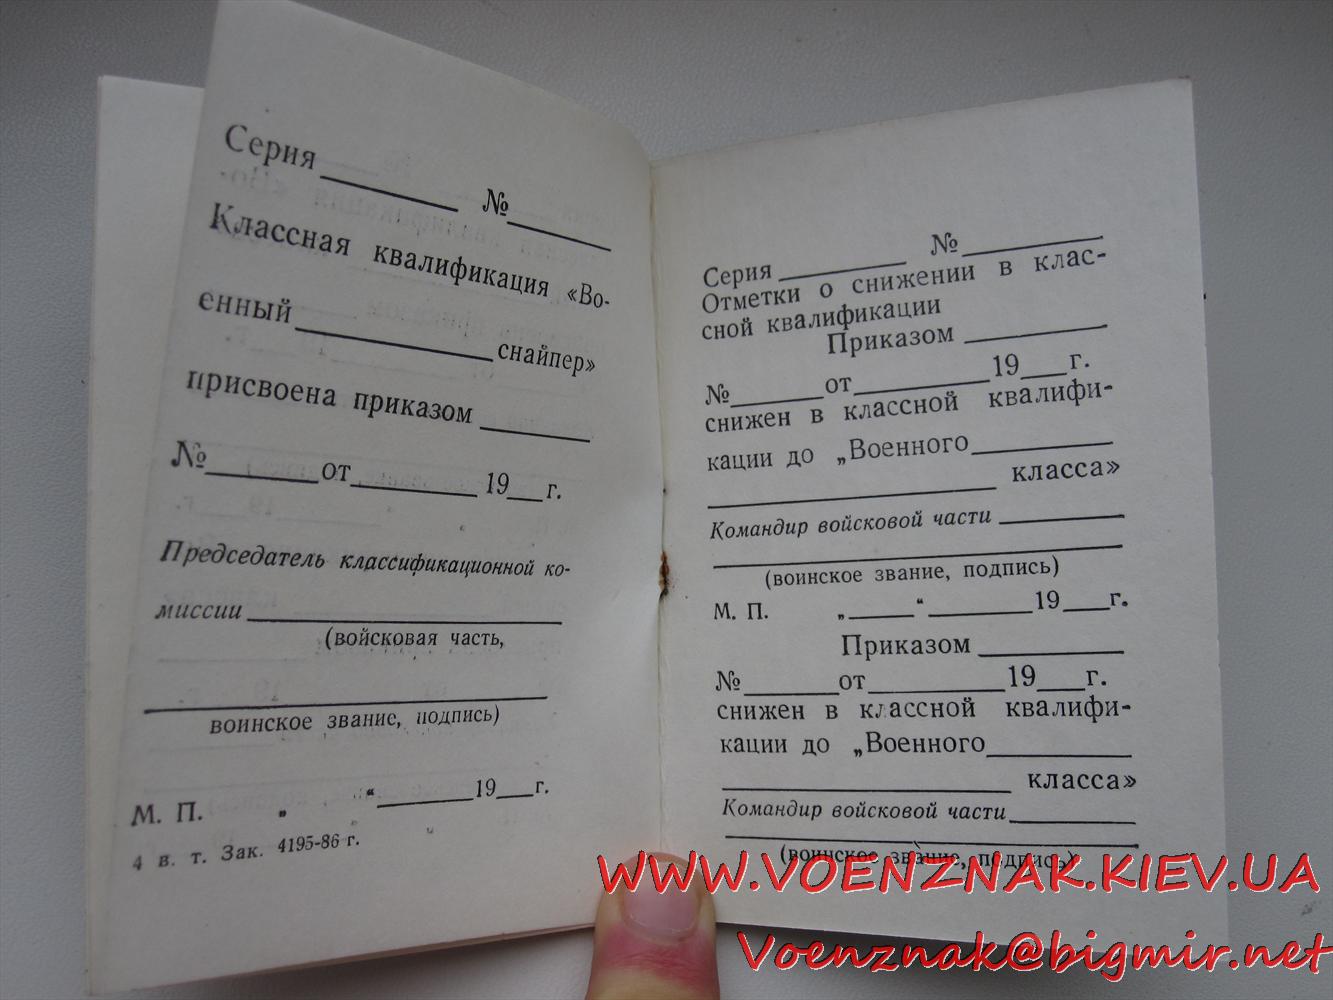 Серия________ №________
Классная квалификация «Во-
енный____________снайпер»
присвоена приказом________
№______от_________ 19___г.
Председатель классификационной ко-
миссии____________________
(войсковая часть,
воинское звание, подпись)
М. П. „ “________19___г.
4 в. т. Зак. 4195-86 г.
Серия________ №________
Отметки о снижении в клас-
сной квалификации
Приказом________
№______от________19___г.
снижен в классной квалифи-
кации до „Военного________
________________ класса»
Командир войсковой части________
(воинское звание, подпись)
М. П. „____“________19___г.
Приказом________
№______от________19___г.
снижен в классной квалифи-
кации до „Военного________
________________ класса»
Командир войсковой части________
(воинское звание, подпись)
WWW.VOENZNAK.KIEV.UA
Voenznak@bigmir.net